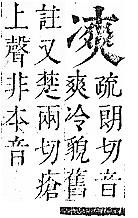 㵳
疏朗切音
爽冷貌舊
註又楚兩切瘡
上聲非本音